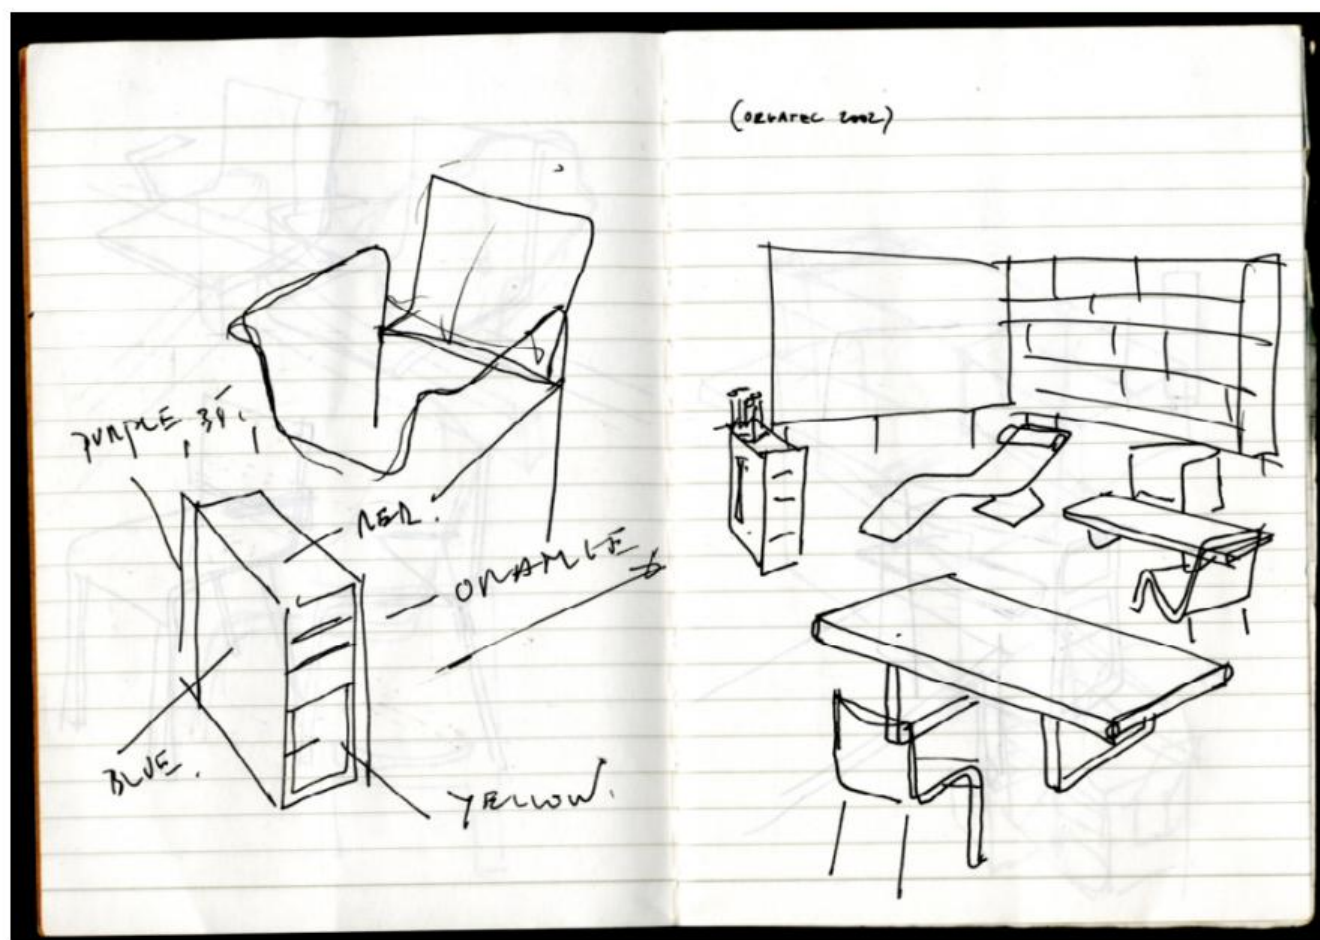 PURPLE
RED.
ORANGE
BLUE.
YELLOW.
(ORGATEC 2002)